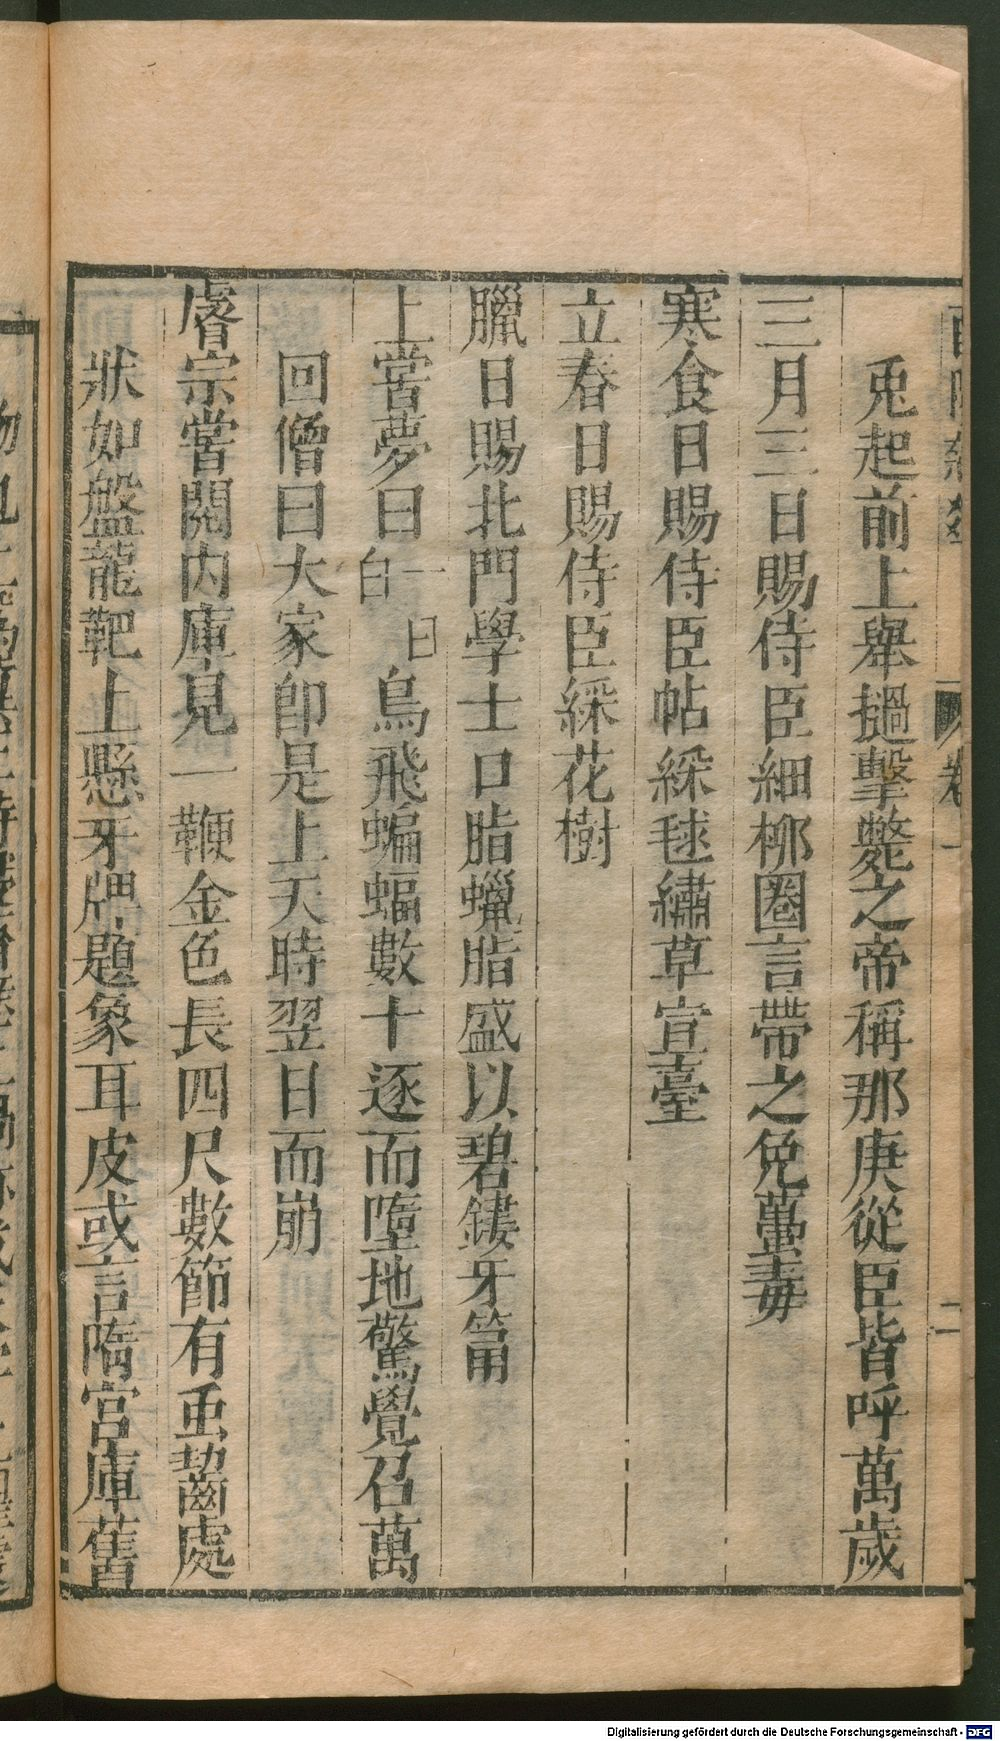 兎起前上舉撾擊斃之帝稱那庚從臣皆呼萬歲
三月三日賜侍臣細柳圈言帶之免蠆毒
寒食日賜侍臣帖綵毬繡草宣臺
立春日賜侍臣綵花樹
臘日賜北門學士口脂蠟脂盛以碧鏤牙筩
上嘗夢曰一曰白烏飛蝙蝠數十逐而墮地驚覺召萬
回僧曰大家即是上天時翌日而崩
睿宗嘗閱内庫見一鞭金色長四尺數節有䖝齧處
狀如盤龍靶上懸牙牌題象耳皮或言隋宮庫舊
卷一
二
Digitalisierung gefördert durch die Deutsche Forschungsgemeinschaft - DFG